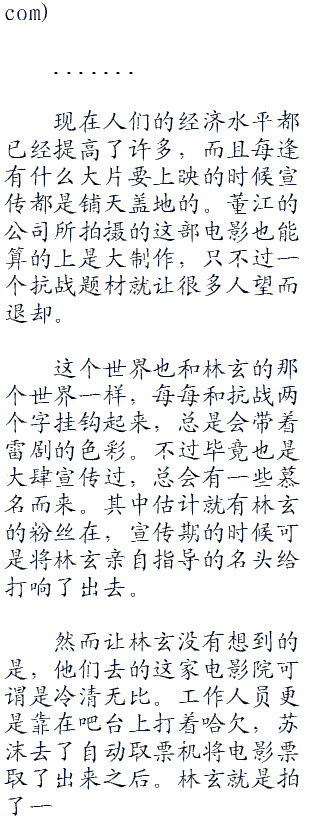 com)
.......
现在人们的经济水平都
已经提高了许多，而且每逢
有什么大片要上映的时候宣
传都是铺天盖地的。董江的
公司所拍摄的这部电影也能
算的上是大制作，只不过一
个抗战题材就让很多人望而
退却。
这个世界也和林玄的那
个世界一样，每每和抗战两
个字挂钩起来，总是会带着
雷剧的色彩。不过毕竟也是
大肆宣传过，总会有一些慕
名而来。其中估计就有林玄
的粉丝在，宣传期的时候可
是将林玄亲自指导的名头给
打响了出去。
然而让林玄没有想到的
是，他们去的这家电影院可
谓是冷清无比。工作人员更
是靠在吧台上打着哈欠，苏
沫去了自动取票机将电影票
取了出来之后。林玄就是拍
了一